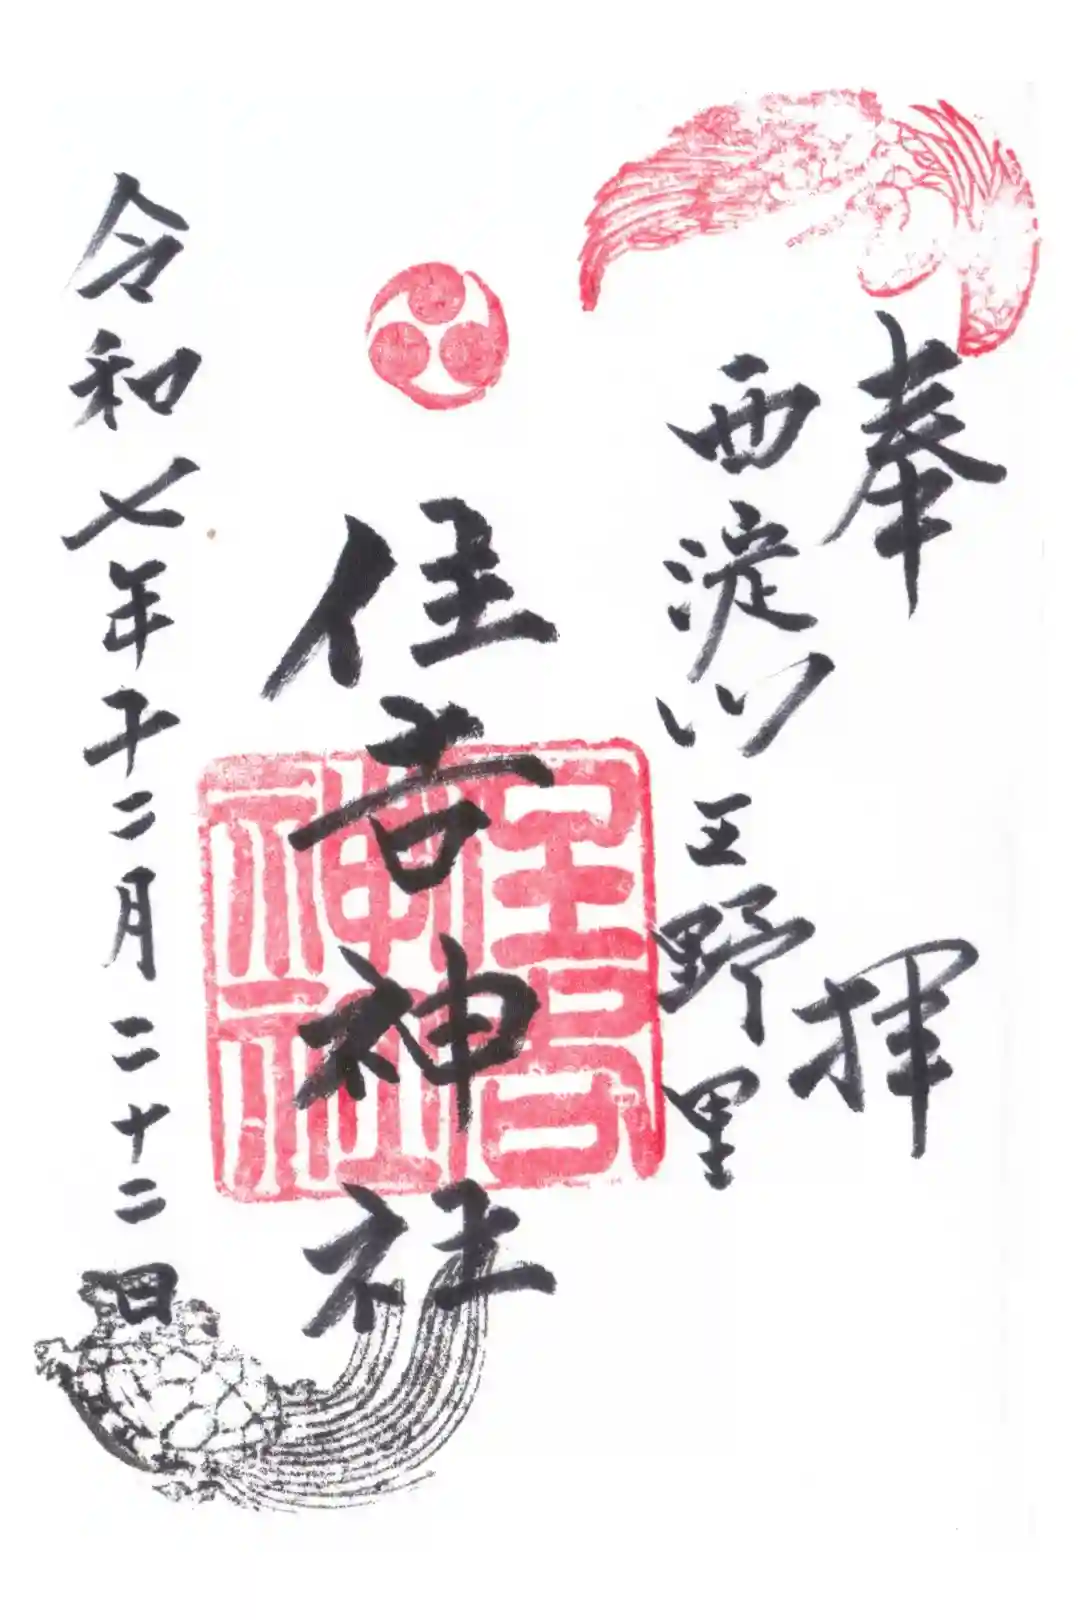 奉拝
西淀川 野里
住吉神社
住吉
神社
令和七年十二月二十二日